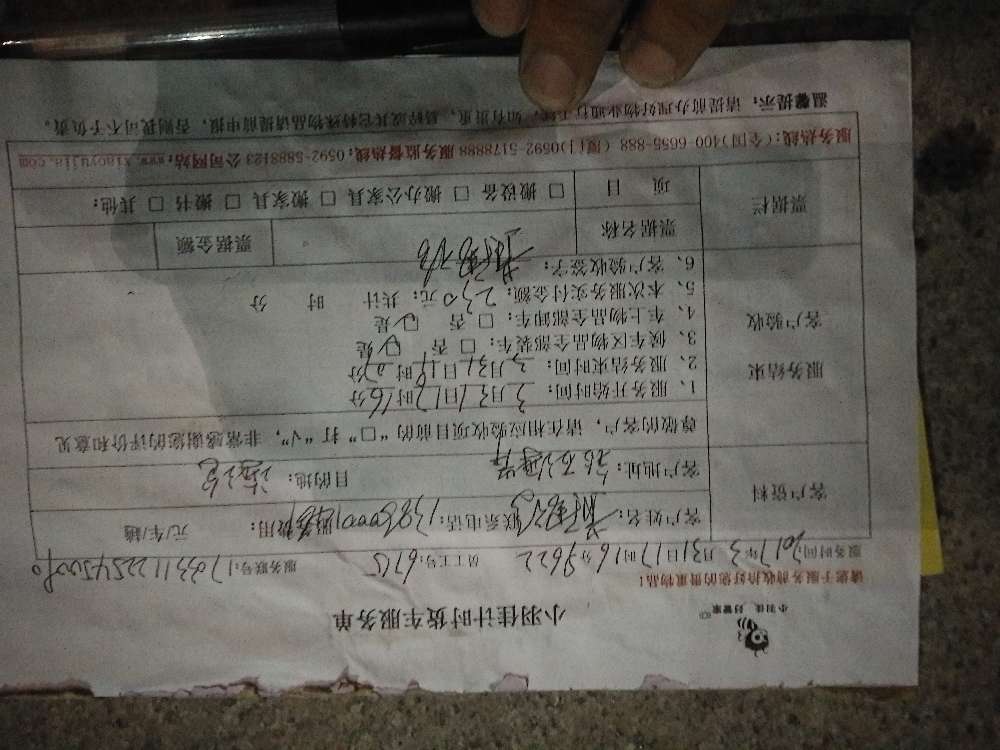 小羽佳 好管家
小羽佳计时货车服务单
请您于服务前收拾好您的贵重物品!
服务时间: 2017年3月31日17时16分 9622 员工工号: 6715 服务联号: 1703311225450090
客户资料
客户姓名: 联系电话: 服务费用: 元/车/趟
客户地址: 目的地:
服务结束 客户验收
尊敬的客户,请在相应验收项目前的“□”打“√”,非常感谢您的评价和意见
1、服务开始时间: 3月31日17时16分
2、服务结束时间: 3月31日
3、候车区物品全部装车: □ 否 ☑ 是
4、车上物品全部卸车: □ 否 ☑ 是
5、本次服务实付金额: 230元; 共计 时 分
6、客户验收签字:
票据栏
票据名称 票据金额
项 目 □ 搬设备 □ 搬办公家具 □ 搬家具 □ 搬书 □ 其他:
服务热线:(全国)400-6655-888 (厦门)0592-5178888 服务监督热线: 0592-5888123 公司网站: www.xiaoyujia.com
温馨提示: 请提前办理好物业通行手续, 如有重量, 易碎或其它特殊物品请提前申报, 否则我司不予负责。